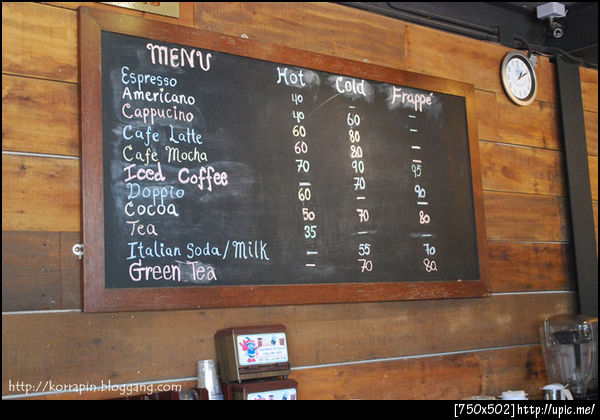 MENU Hot Cold Frappé
Espresso 40 – –
Americano 40 60 –
Cappucino 60 80 –
Cafe Latte 60 80 –
Cafè Mocha 70 90 95
Iced Coffee – 70 90
Doppio 60 – –
Cocoa 50 70 80
Tea 35 – –
Italian Soda/Milk – 55 70
Green Tea – 70 80
http://korrapin.bloggang.com
[750x502] http://upic.me/